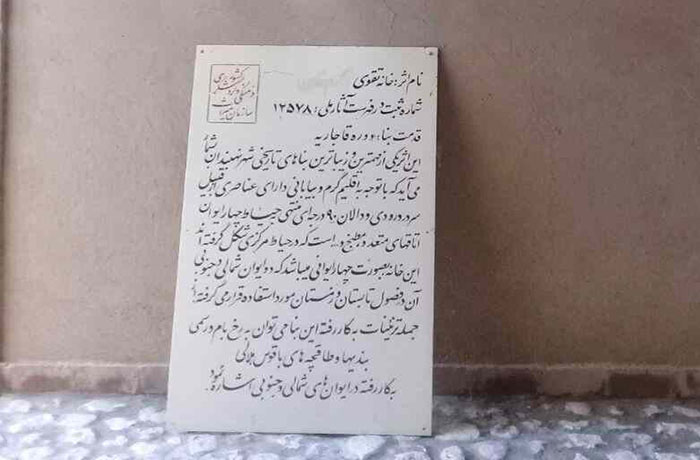 نام اثر: خانه تقوی
شماره ثبت در فهرست آثار ملی: ۱۲۵۷۸
قدمت بنا: دوره قاجاریه
این اثر یکی از مهمترین و زیباترین بناهای تاریخی شهر نهبندان بشمار
می آید که با توجه به اقلیم گرم و بیابانی دارای عناصری از قبیل
سردر ورودی و دالان ۹۰ درجه ای منتهی به حیاط چهار ایوان
اتاقهای متعدد و مطبخ و... است که در حیاط مرکزی شکل گرفته اند
این خانه بصورت چهار ایوانی میباشد که دو ایوان شمالی و جنوبی
آن در فصول تابستان و زمستان مورد استفاده قرار می گرفته است
جمله تزئینات به کار رفته این بنا می توان به رخ بام و رسمی
بندیها و طاقچه های با قوس هلالی
به کار رفته در ایوان های شمالی و جنوبی اشاره نمود.
سازمان میراث
فرهنگی و گردشگری